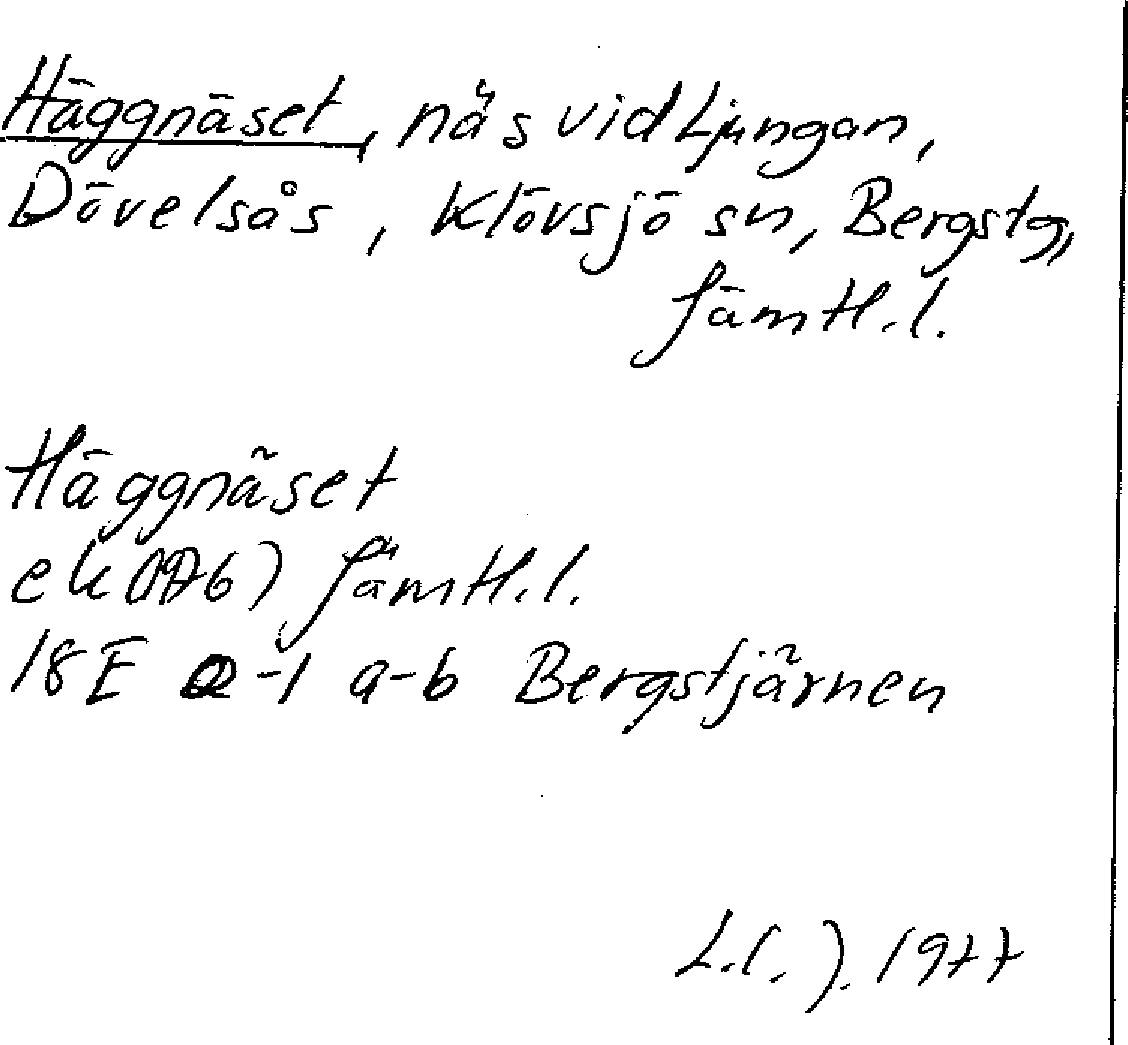 Häggnäset, näs vid Ljungan,
Dövelsås, Klövsjö sn, Bergs tg,
Jämtl.l.
Häggnäset
ek (1976) Jämtl.l.
18E 2-1 a-b Bergstjärnen
1977